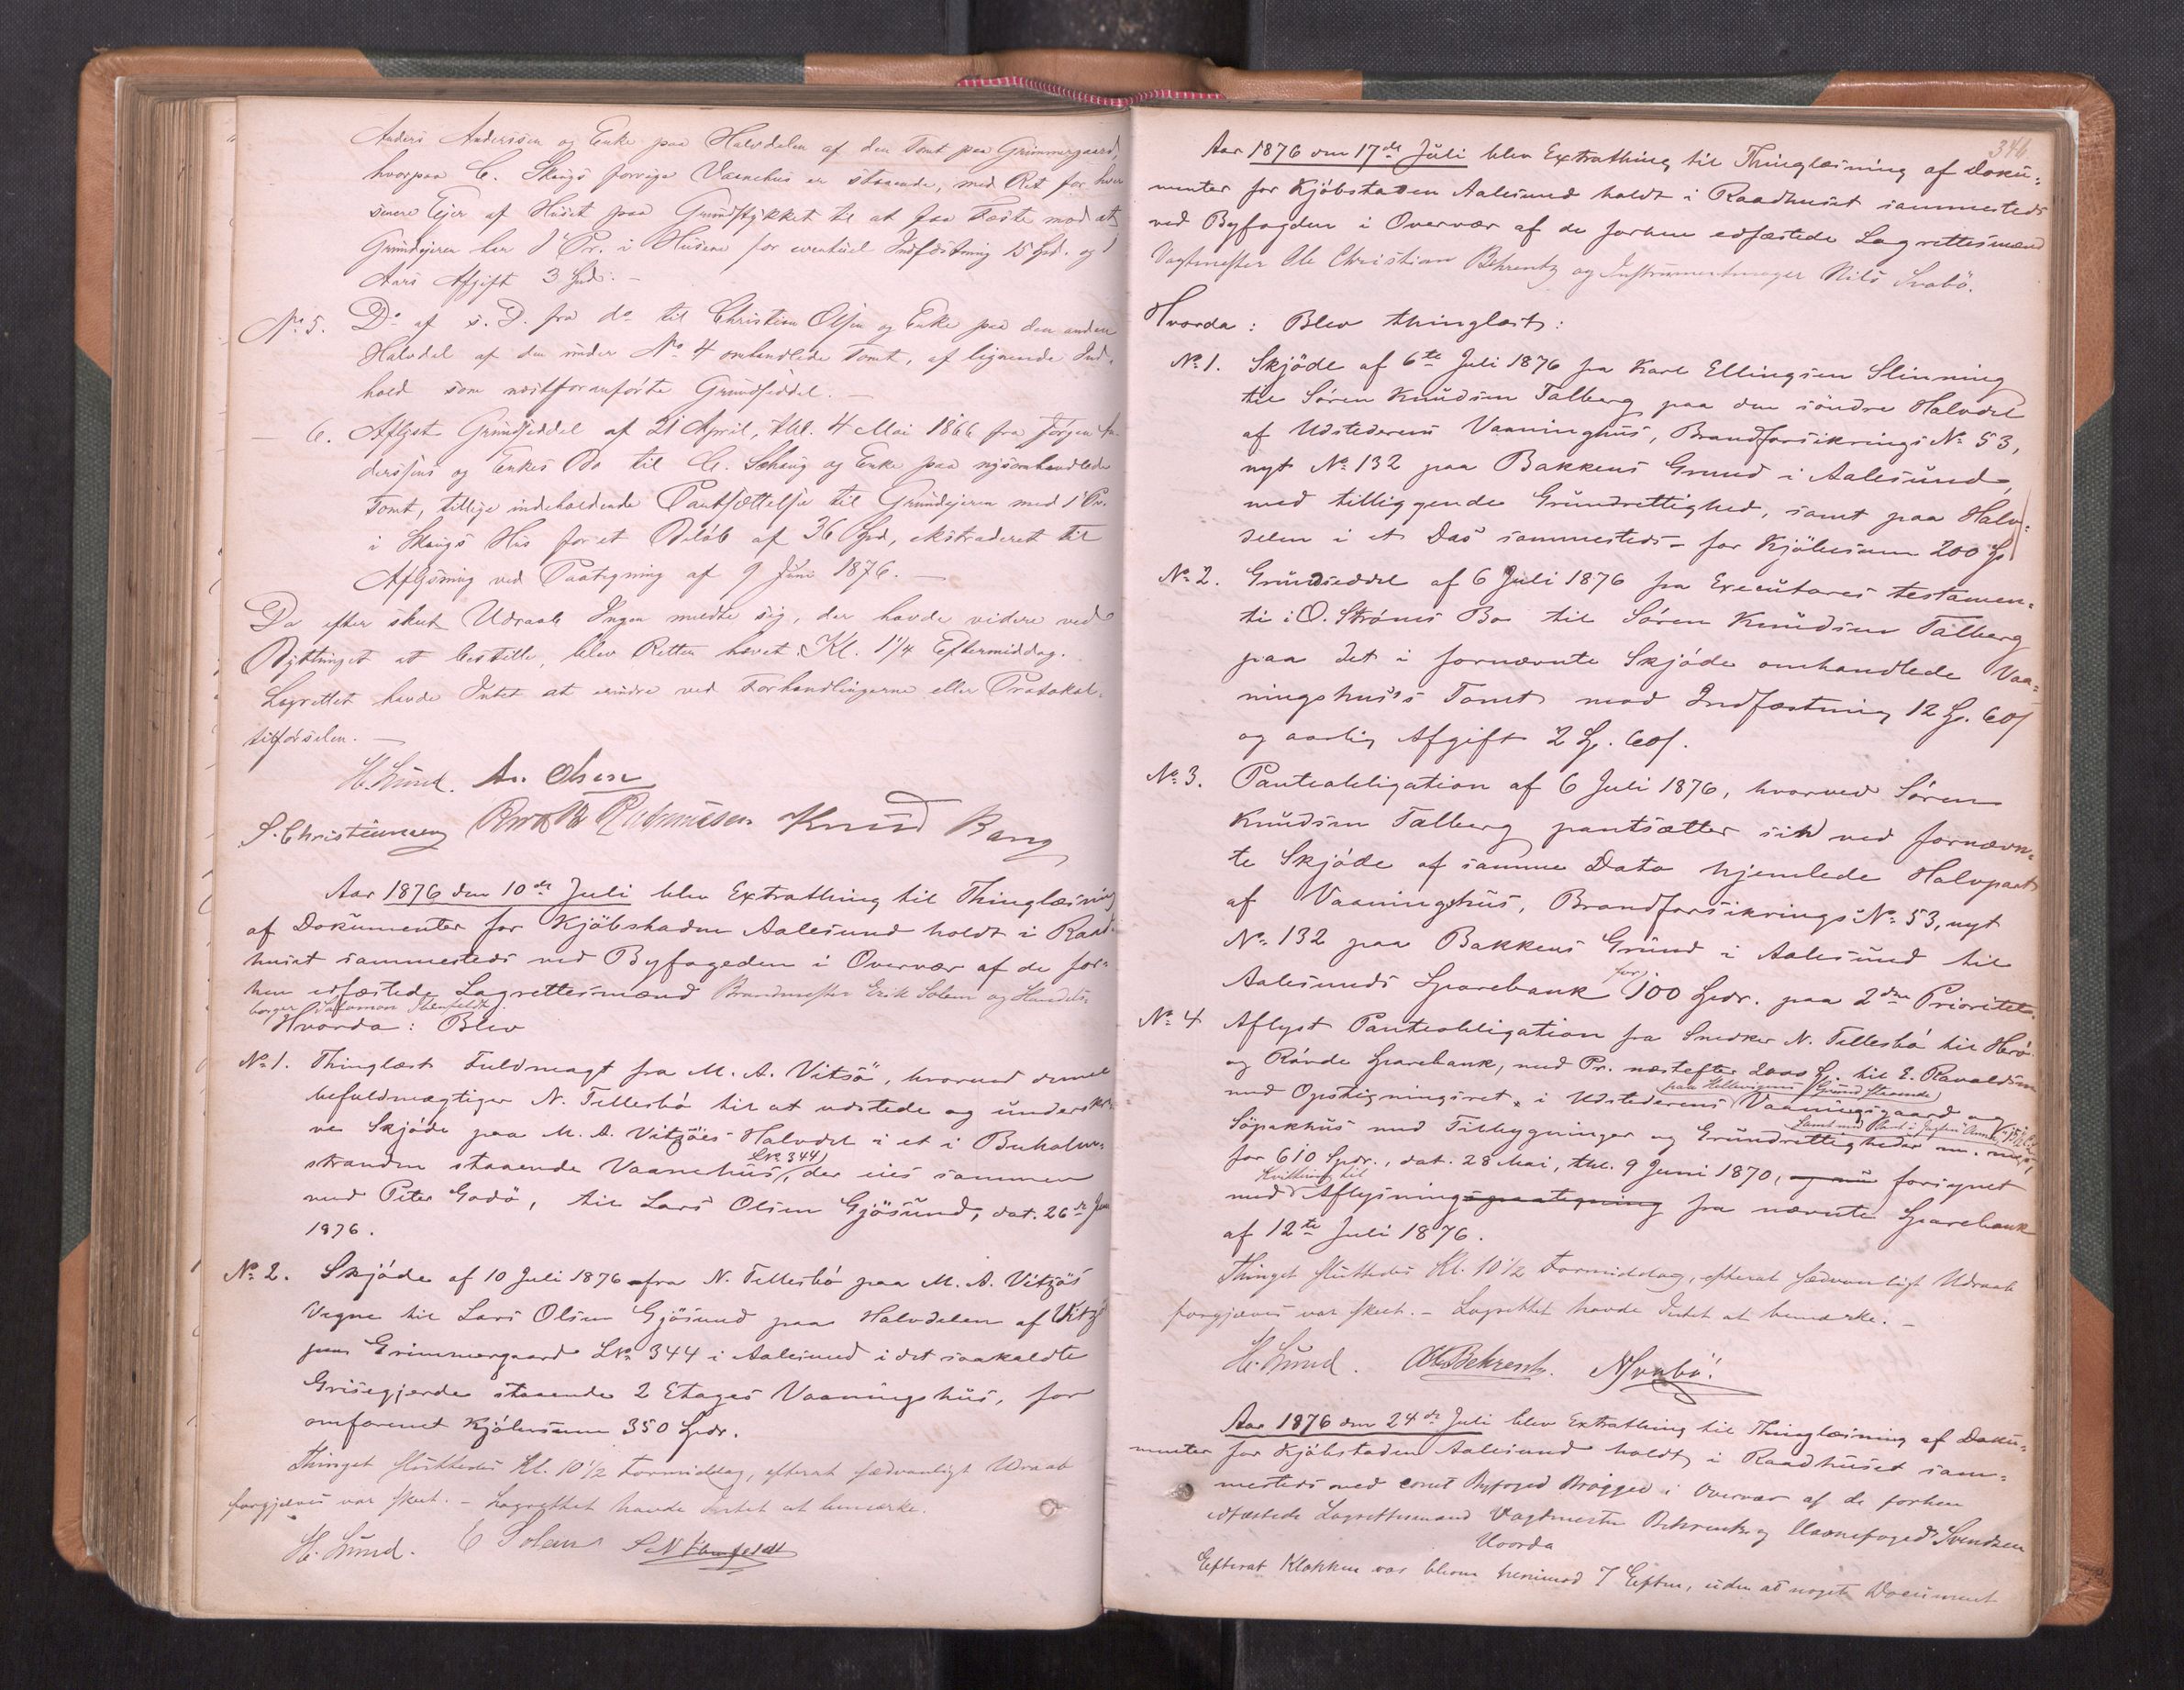 Anders Anderssen og Enke paa Halvdelen af den Tomt paa Grimmergaard,
hvorpaa C. Skougs forrige Vaanehus er staaende, med Ret for hver
senere Ejer af Huset paa Grundstykket til at faa Fæste mod at
Grundejeren har 1 Pr. i Husene for eventuel Indfæstning 15 Spd. og 1
Aars Afgift 3 Spd. –
No 5. Do af s. D. fra do til Christian Olsen og Enke paa den anden
Halvdel af den under No 4 omhandlede Tomt, af lignende Ind-
hold som næstforanførte Grundseddel. –
– 6. Aflyst Grundseddel af 21 April, thl. 4 Mai 1866 fra Jørgen An-
derssens og Enkes Bo til C. Schoug og Enke paa nysomhandlede
Tomt, tillige indeholdende Pantsættelse til Grundejeren med 1 Pr.
i Skougs Hus for et Beløb af 36 Spd, ekstraderet til
Aflysning ved Paategning af 9 Juni 1876. –
Da efter skeet Udraab Ingen meldte sig, der havde videre ved
Bythinget at bestille, blev Retten hævet Kl. 1 1/4 Eftermiddag.
Lagrettet havde Intet at erindre ved Forhandlingerne eller Protokol-
tilførselen. –
H. Lund. An. Olsen
S. Christiansen Rasmussen Knud Bang
Aar 1876 den 10de Juli blev Extrathing til Thinglæsning
af Dokumenter for Kjöbstaden Aalesund holdt i Raad-
huset sammesteds ved Byfogeden i Overvær af de for-
hen edfæstede Lagrettesmænd Brandmester Erik Solem og Handels-
borger Salamon
Hvorda: Blev
No 1. Thinglæst Fuldmagt fra M. A. Vitsö, hvorved denne
befuldmægtiger N. Tellesbö til at udstede og underskri-
ve Skjöde paa M. A. Vitzöes Halvdel i et i Buholm-
stranden staaende Vaanehus, der eies sammen
LNo 344
med Peter Godö, til Lars Olsen Gjösund, dat. 26de Juni
1876.
No 2. Skjöde af 10 Juli 1876 fra N. Tellesbö paa M. A. Vitzös
Vegne til Lars Olsen Gjösund paa Halvdelen af Vitzö
paa Grimmergaard LNo 344 i Aalesund i det saakaldte
Grisegjerde staaende 2 Etages Vaaningshus, for
omforenet Kjöbesum 350 Spdr.
Thinget sluttedes Kl. 10 1/2 Formiddag, efterat sædvanligt Udraab
forgjæves var skeet. – Lagrettet havde Intet at bemærke.
H. Lund. E Solem
346
Aar 1876 den 17de Juli blev Extrathing til Thinglæsning af Doku-
menter for Kjöbstaden Aalesund holdt i Raadhuset sammesteds
ved Byfogden i Overvær af de forhen edfæstede Lagrettesmænd
Vagtmester Ole Christian Behrentz og Instrumentmager Nils Svabö.
Hvorda: Blev thinglæst:
No 1. Skjöde af 6te Juli 1876 fra Karl Ellingsen Slinning
til Sören Knudsen Talberg paa den söndre Halvdel
af Udstederens Vaaninghus, Brandforsikrings No 53,
nyt No 132 paa Bakkens Grund i Aalesund,
med tilliggende Grundrettighed, samt paa Halv-
delen i et Das sammesteds – for Kjöbesum 200 Sp
No 2. Grundseddel af 6 Juli 1876 fra Executores testamen-
ti i O. Ströms Bo til Sören Knudsen Talberg
paa det i fornævnte Skjöde omhandlede Vaa-
ningshuses Tomt mod Indfæstning 12 Sp. 60 s
og aarlig Afgift 2 Sp. 60 s.
No 3. Panteobligation af 6 Juli 1876, hvorved Sören
Knudsen Talberg pantsætter sin ved fornævn-
te Skjöde af samme Dato hjemlede Halvpart
af Vaaningshus, Brandforsikrings No 53, nyt
No 132 paa Bakkens Grund i Aalesund til
Aalesunds Sparebank for 100 Spdr. paa 2den Prioritet.
No 4 Aflyst Panteobligation fra Snedker N. Tellesbö til Herö
og Rövde Sparebank, med Pr. næstefter 2000 Sp. til E. Ravaldsen
med Opstigningsret, i Udstederens Vaaningsgaard og
paa Hellevigens Grund staaende
Söpakhus med Tilbygninger og Grundrettigheder m. m.,
Samt med Pant i Jagten "Anna"
for 610 Spdr., dat. 28 Mai, thl. 9 Juni 1870, og nu forsynet
Kvittering til
med Aflysningspaategning fra nævnte Sparebank
af 12te Juli 1876.
Thinget sluttedes Kl. 10 1/2 Formiddag, efterat sædvanligt Udraab
forgjæves var skeet. – Lagrettet havde Intet at bemærke. –
H. Lund. Ole Behrentz. N Svabö.
Aar 1876 den 24de Juli blev Extrathing til Thinglæsning af Doku-
menter for Kjöbstaden Aalesund holdt i Raadhuset sam-
mesteds ved const Byfoged Brögger i Overvær af de forhen
edfæstede Lagrettesmænd Vagtmester Behrentz og Havnefoged Svendsen
Hvorda
Efterat Klokken var bleven henimod 7 Efterm, uden at noget Document